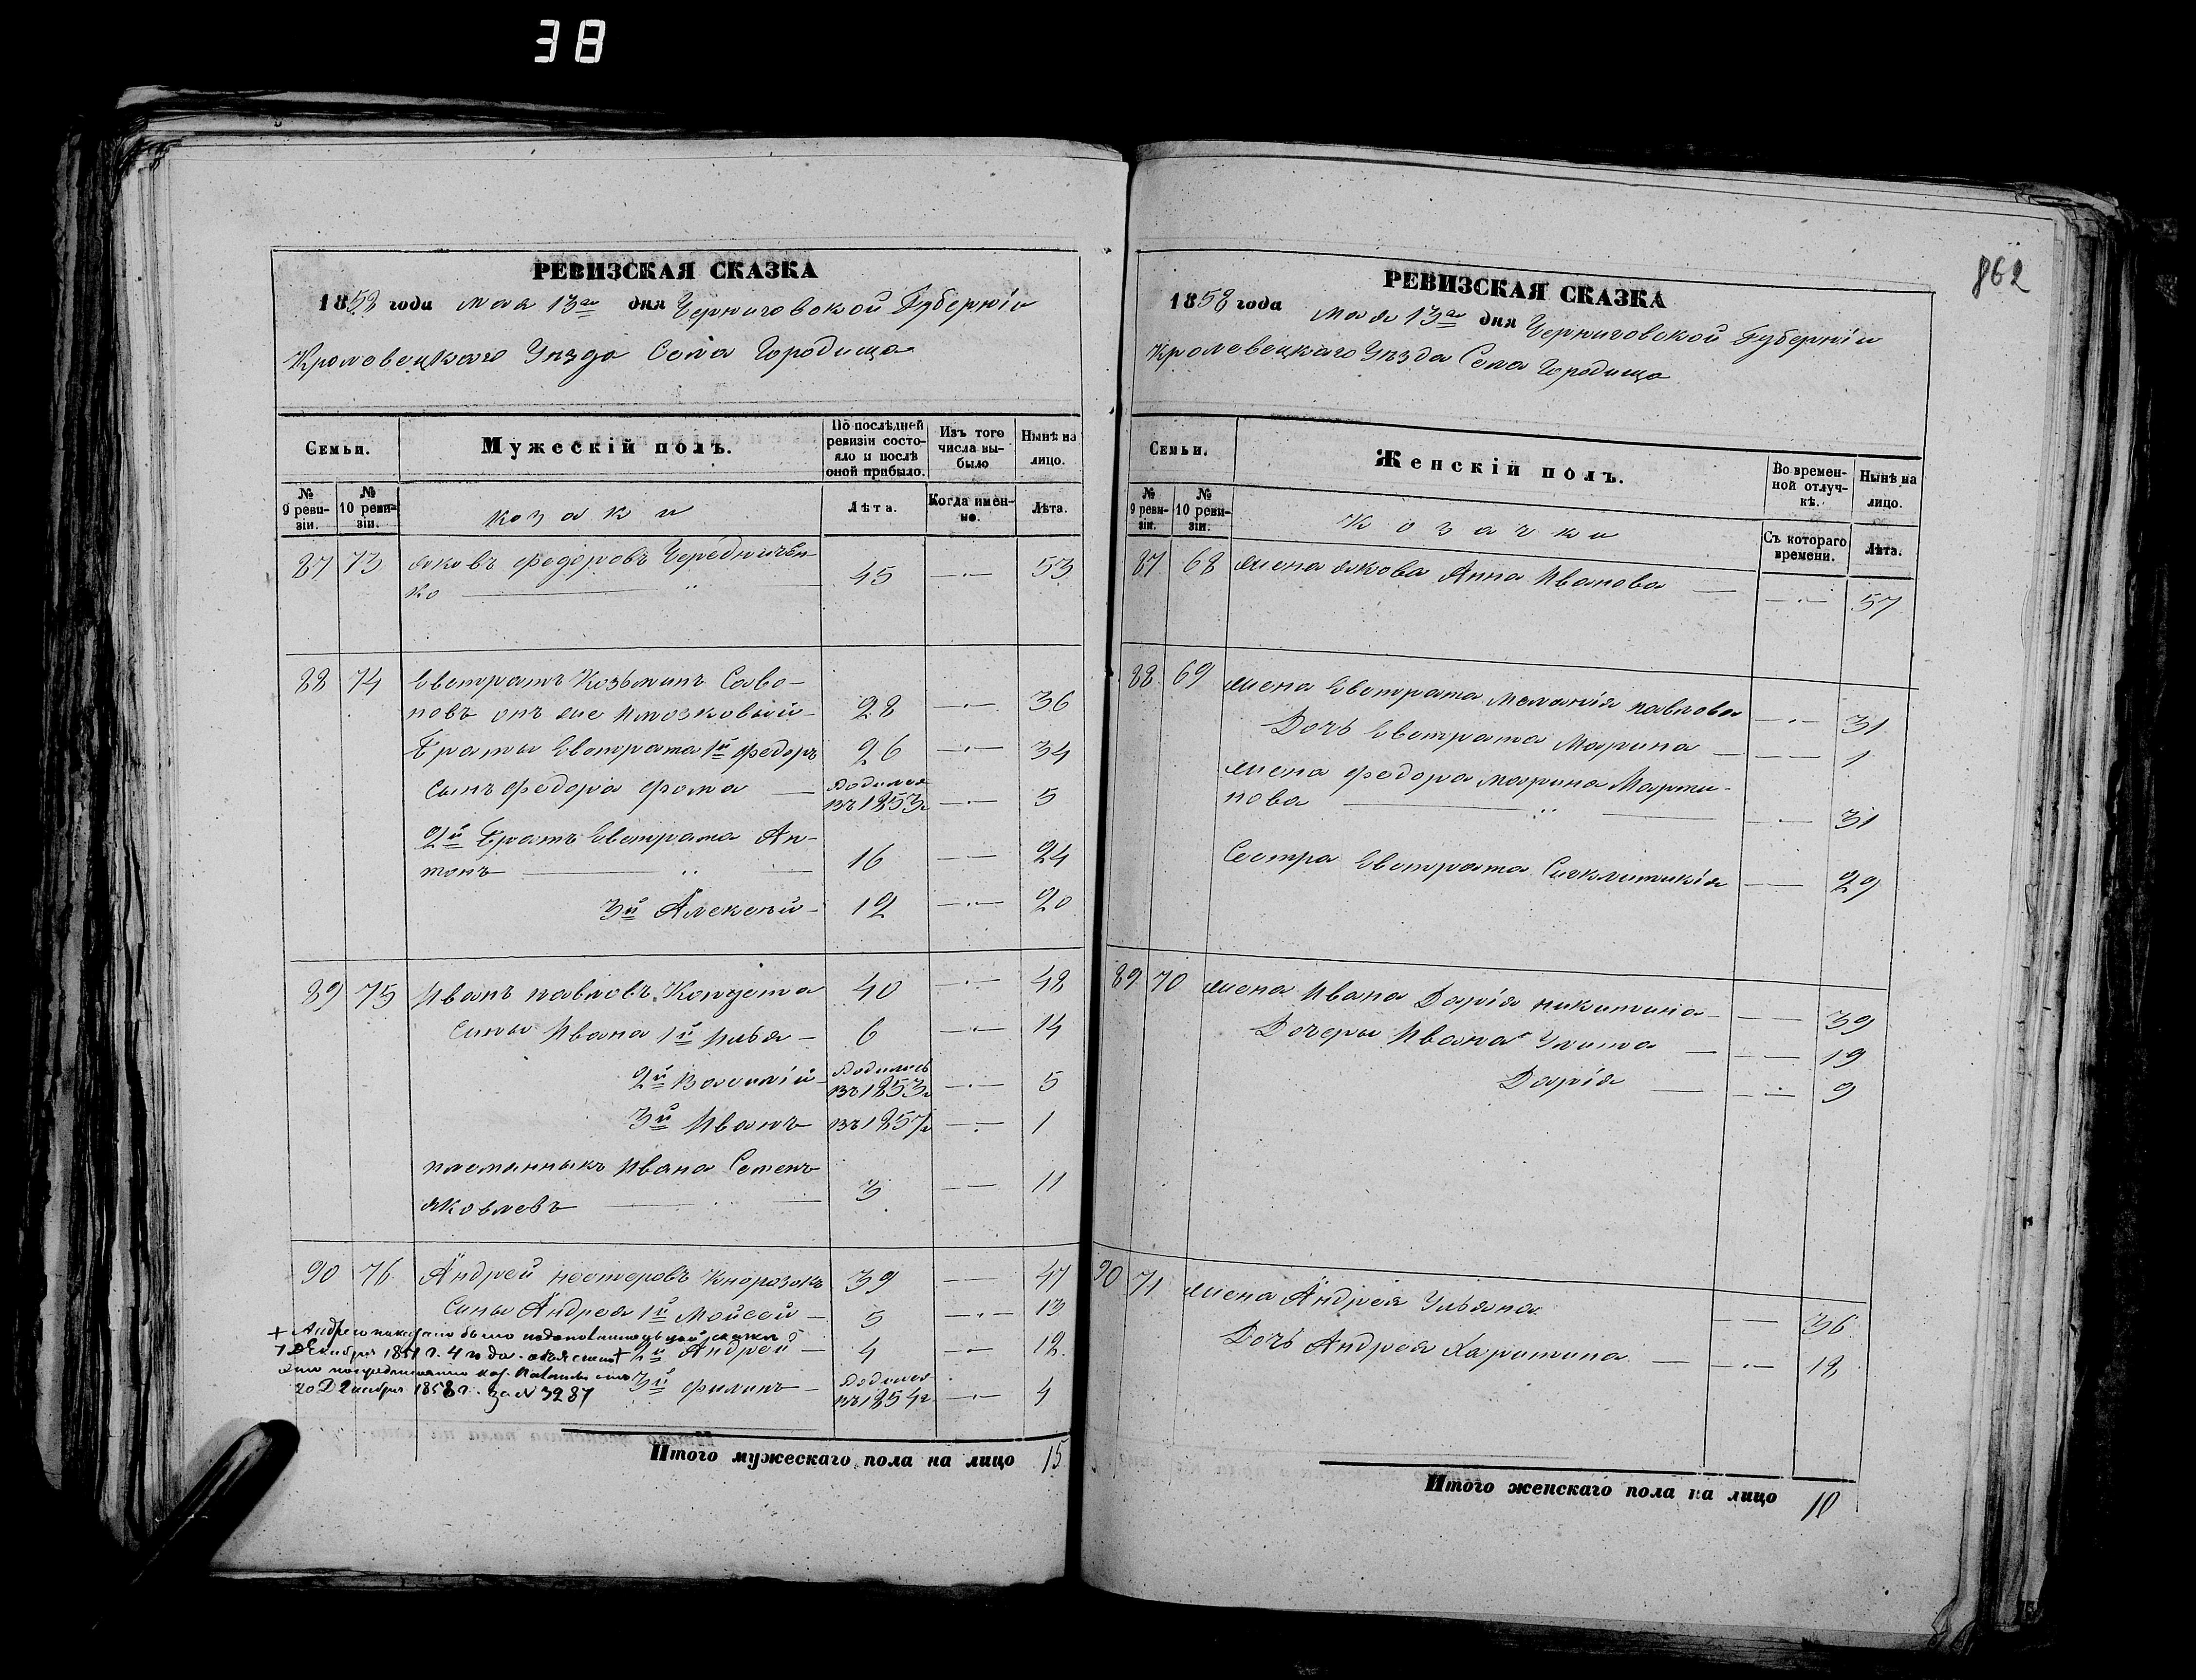 38
862
РЕВИЗСКАЯ СКАЗКА
1858 года мая 13го дня Черниговской Губерніи
Кролевецкаго Уѣзда Села Городища
Семьи. Мужескій полъ. По послѣдней ревизіи состояло и послѣ оной прибыло. Изъ того числа выбыло Нынѣ на лицо.
№ 9 ревизіи. № 10 ревизіи. козаки Лѣта. Когда именно. Лѣта.
87 73 Яковъ Федоровъ Чередничен-
ко 45 53
88 74 Евстратъ Козьминъ Саво-
новъ онъ же 28 36
Братья Евстрата 1й Федоръ 26 34
Сынъ Федора Фома Родился въ 1853г 5
2й Братъ Евстрата Ан-
тонъ 16 24
3й Алексѣй 12 20
89 75 Иванъ Павловъ 40 48
Сыны Ивана 1й Илья 6 14
2й Василій Родились въ 1853г 5
3й Иванъ въ 1857г 1
племянныкъ Ивана Семенъ
Яковлевъ 3 11
90 76 Андрей Нестеровъ Кнорозокъ 39 47
Сыны Андрея 1й Мойсей 5 13
+ 2й Андрей 4 12
3й Филипъ Родился въ 1854г 4
+ Андрею показано было
7 Декабря 1851 г. 4 года
20 Декабря 1858 г. за № 3287
Итого мужескаго пола на лицо 15
РЕВИЗСКАЯ СКАЗКА
1858 года мая 13го дня Черниговской Губерніи
Кролевецкаго Уѣзда Села Городища
Семьи. Женскій полъ. Во временной отлучкѣ. Нынѣ на лицо.
№ 9 ревизіи. № 10 ревизіи. Козачки Съ котораго времени. Лѣта.
87 68 жена Якова Анна Иванова 57
88 69 жена Евстрата Меланія Павлова 31
Дочь Евстрата Марина 1
жена Федора Марина Марти-
нова 31
Сестра Евстрата Сигклитикія 29
89 70 жена Ивана Дарія Никитина 39
Дочеры Ивана Улита 19
Дарія 9
90 71 жена Андрея Ульяна 36
Дочь Андрея Харитина 18
Итого женскаго пола на лицо 10